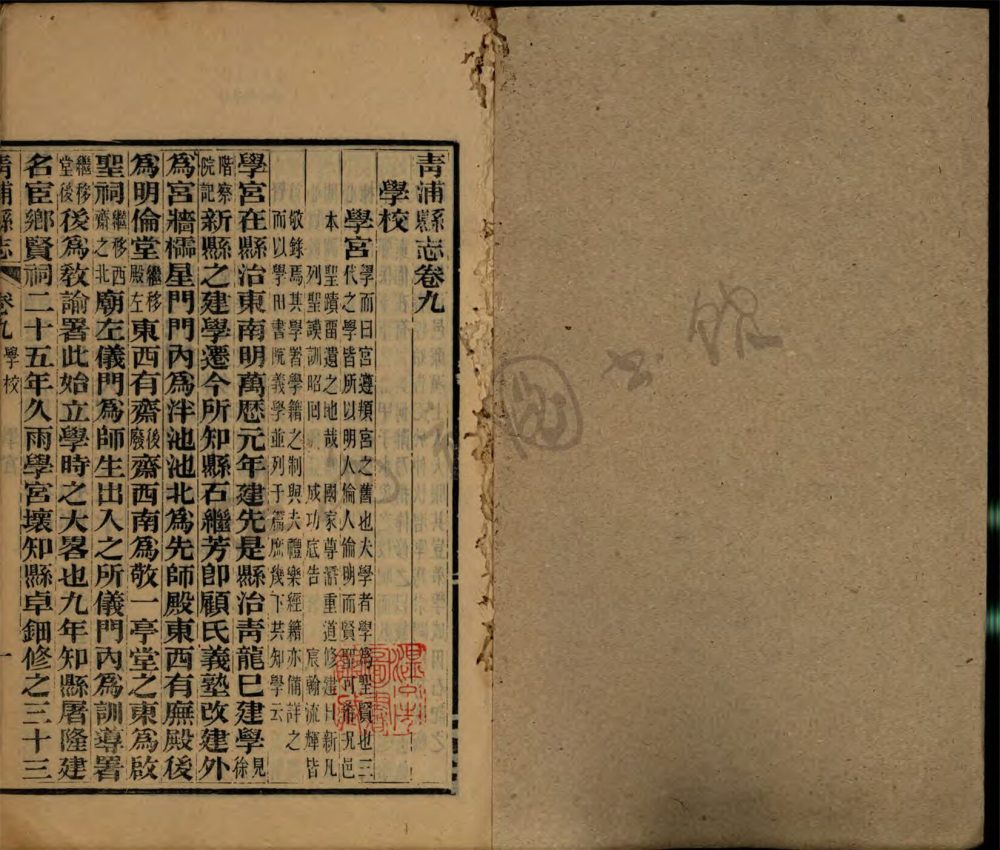 青浦縣志卷九
學校
學宮
學而曰宮遵頖宮之舊也夫學者學爲聖賢也三
代之學皆所以明人倫人倫明而賢聖可希況邑
本 聖蹟畱遺之地哉 國家尊儒重道修建日新凡
列聖謨訓昭回 成功底告 宸翰流輝皆
敬錄焉其學署學籍之制與夫禮樂經籍亦備詳之
而以學田書院義學並列于篇庶幾下共知學云
學宮在縣治東南明萬歷元年建先是縣治青龍已建學見徐
階察院記新縣之建學遷今所知縣石繼芳卽顧氏義塾改建外
爲宮牆櫺星門門內爲泮池池北爲先師殿東西有廡殿後
爲明倫堂繼移殿左東西有齋後廢齋西南爲敬一亭堂之東爲啟
聖祠繼移西齋之北廟左儀門爲師生出入之所儀門內爲訓導署
繼移堂後後爲敎諭署此始立學時之大畧也九年知縣屠隆建
名宦鄉賢祠二十五年久雨學宮壞知縣卓鈿修之三十三
青浦縣志 卷九 學校 一